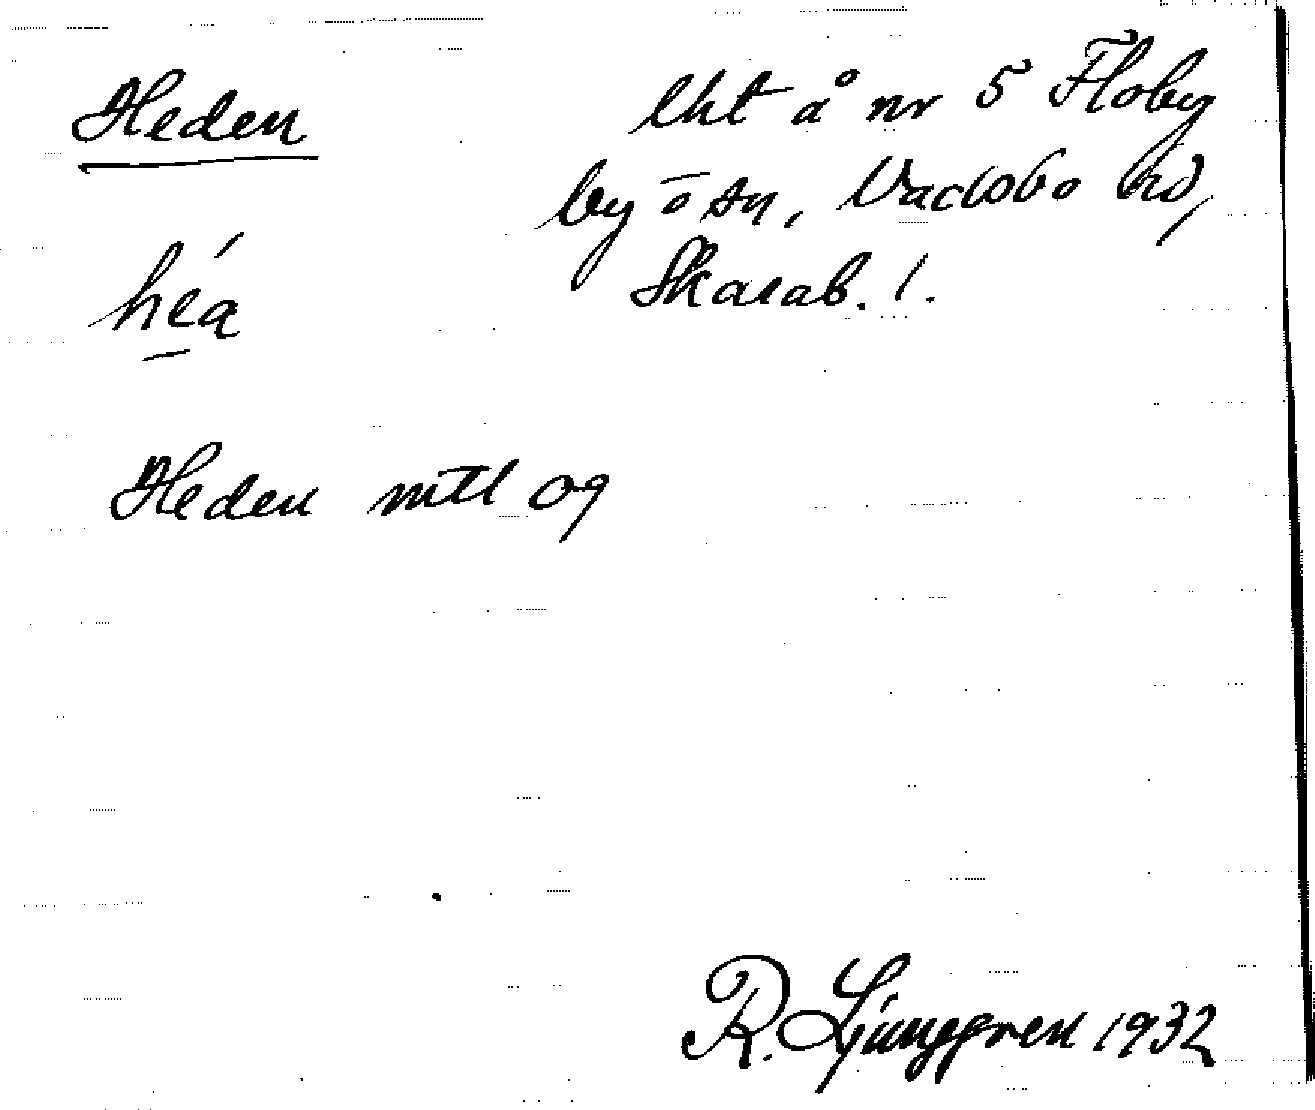 Heden
lht å nr 5 Floby
by ō sn, Vadsbo hd,
Skarab. l.
héa
Heden mtl 09
R. Ljunggren 1932